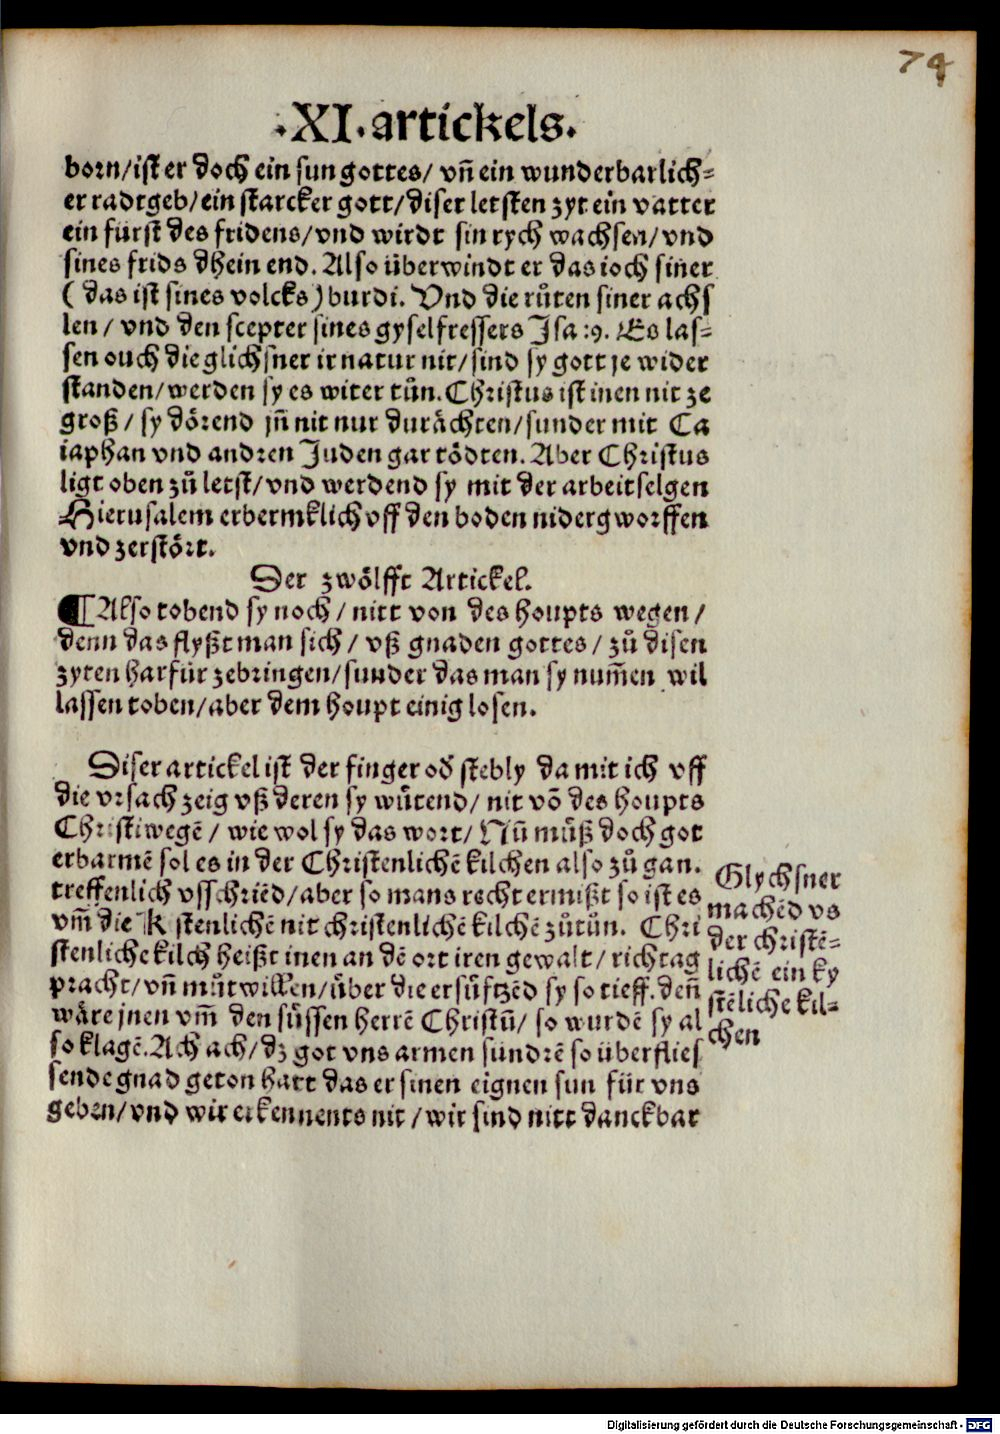 74
.XI. artickels.
born/ist er doch ein sun gottes/ vñ ein wunderbarlich=
er radtgeb/ein starcker gott/diser letsten zyt ein vatter
ein fürst des fridens/vnd wirdt sin rych wachsen/vnd
sines frids dhein end. Also überwindt er das ioch siner
( das ist sines volcks) burdi. Vnd die růten siner achs
len / vnd den scepter sines gyselfressers Isa :9. Es las=
sen ouch die glichsner ir natur nit/sind sy gott je wider
standen/werden sy es witer tůn. Christus ist inen nit ze
groß / sy dörend jñ nit nur durächten/sunder mit Ca
iaphan vnd andren Juden gar tödten. Aber Christus
ligt oben zů letst/vnd werdend sy mit der arbeitselgen
Hierusalem erbermklich vff den boden nidergworffen
vnd zerstört.
Der zwölfft Artickel.
¶ Also tobend sy noch / nitt von des houpts wegen /
denn das flyßt man sich / vß gnaden gottes / zů disen
zyten harfür zebringen/sunder das man sy num̃en wil
lassen toben/aber dem houpt einig losen.
Diser artickel ist der finger oď stebly da mit ich vff
die vrsach zeig vß deren sy wůtend/ nit võ des houpts
Christi wegẽ / wie wol sy das wort/ Nů můß doch got
erbarmẽ sol es in der Christenlichẽ kilchen also zů gan.
treffenlich vsschriẽd/aber so mans recht ermißt so ist es
vm̃ die K stenlichẽ nit christenlichẽ kilchẽ zůtůn. Chri
stenliche kilch heißt inen an dẽ ort iren gewalt/ richtag
pracht/vñ můtwillen/über die ersüftzẽd sy so tieff. deñ
wäre jnen vm̃ den süssen herrẽ Christũ/ so wurdẽ sy al
so klagẽ. Ach ach/dz got vns armen sündrẽ so überflies
sende gnad geton hatt das er sinen eignen sun für vns
geben/vnd wir erkennents nit / wir sind nitt danckbar
Glychsner
machẽd vs
der christẽ=
lichẽ ein ky
stẽliche kil=
chen
Digitalisierung gefördert durch die Deutsche Forschungsgemeinschaft - DFG